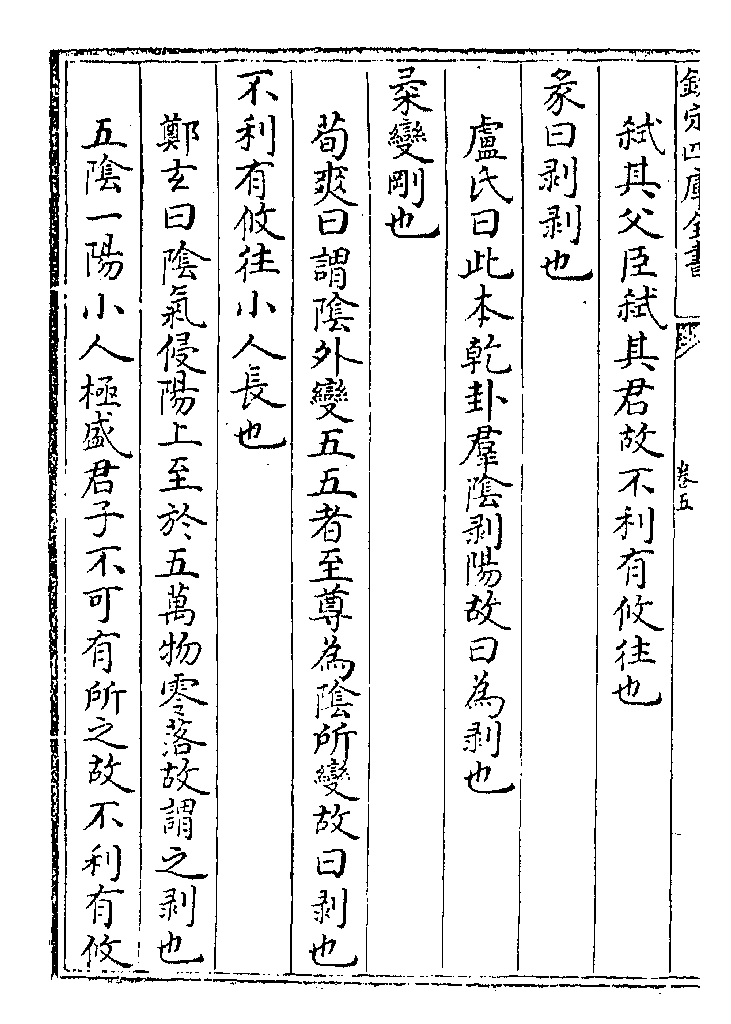 欽定四庫全書
卷五
弑其父臣弑其君故不利有攸往也
彖曰剥剥也
盧氏曰此本乾卦羣陰剥陽故曰為剥也
柔變剛也
荀爽曰謂陰外變五五者至尊為陰所變故曰剥也
不利有攸往小人長也
鄭玄曰陰氣侵陽上至於五萬物零落故謂之剥也
五陰一陽小人極盛君子不可有所之故不利有攸